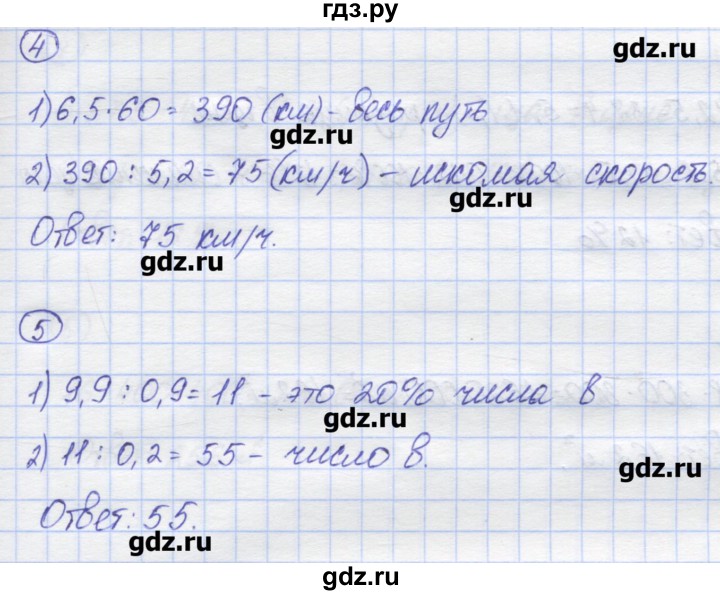 гдз.ру
4
gdz.ru
1) 6,5·60 = 390 (км) - весь путь
gdz.ru
2) 390 : 5,2 = 75 (км/ч) - искомая скорость.
gdz.ru
Ответ: 75 км/ч.
gdz.ru
5
1) 9,9 : 0,9 = 11 - это 20% числа в
gdz.ru
2) 11 : 0,2 = 55 - число в.
gdz.ru
Ответ: 55.
gdz.ru
gdz.ru